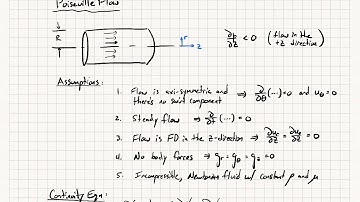 Poiseuille Flow
R
r
z
∂p/∂z < 0 (flow in the +z direction)
Assumptions:
1. Flow is axi-symmetric and there's no swirl component ⇒ ∂/∂θ(...)=0 and u_θ=0
2. Steady flow ⇒ ∂/∂t(...)=0
3. Flow is FD in the z-direction ⇒ ∂u_r/∂z = ∂u_z/∂z = 0
4. No body forces ⇒ g_r = g_θ = g_z = 0
5. Incompressible, Newtonian fluid w/ constant ρ and μ
Continuity Eqn: